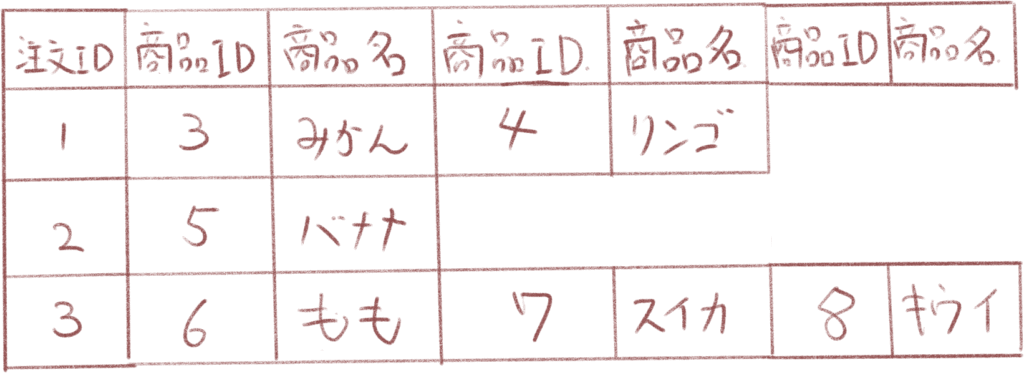 注文ID 商品ID 商品名 商品ID 商品名 商品ID 商品名
1 3 みかん 4 リンゴ
2 5 バナナ
3 6 もも 7 スイカ 8 キウイ